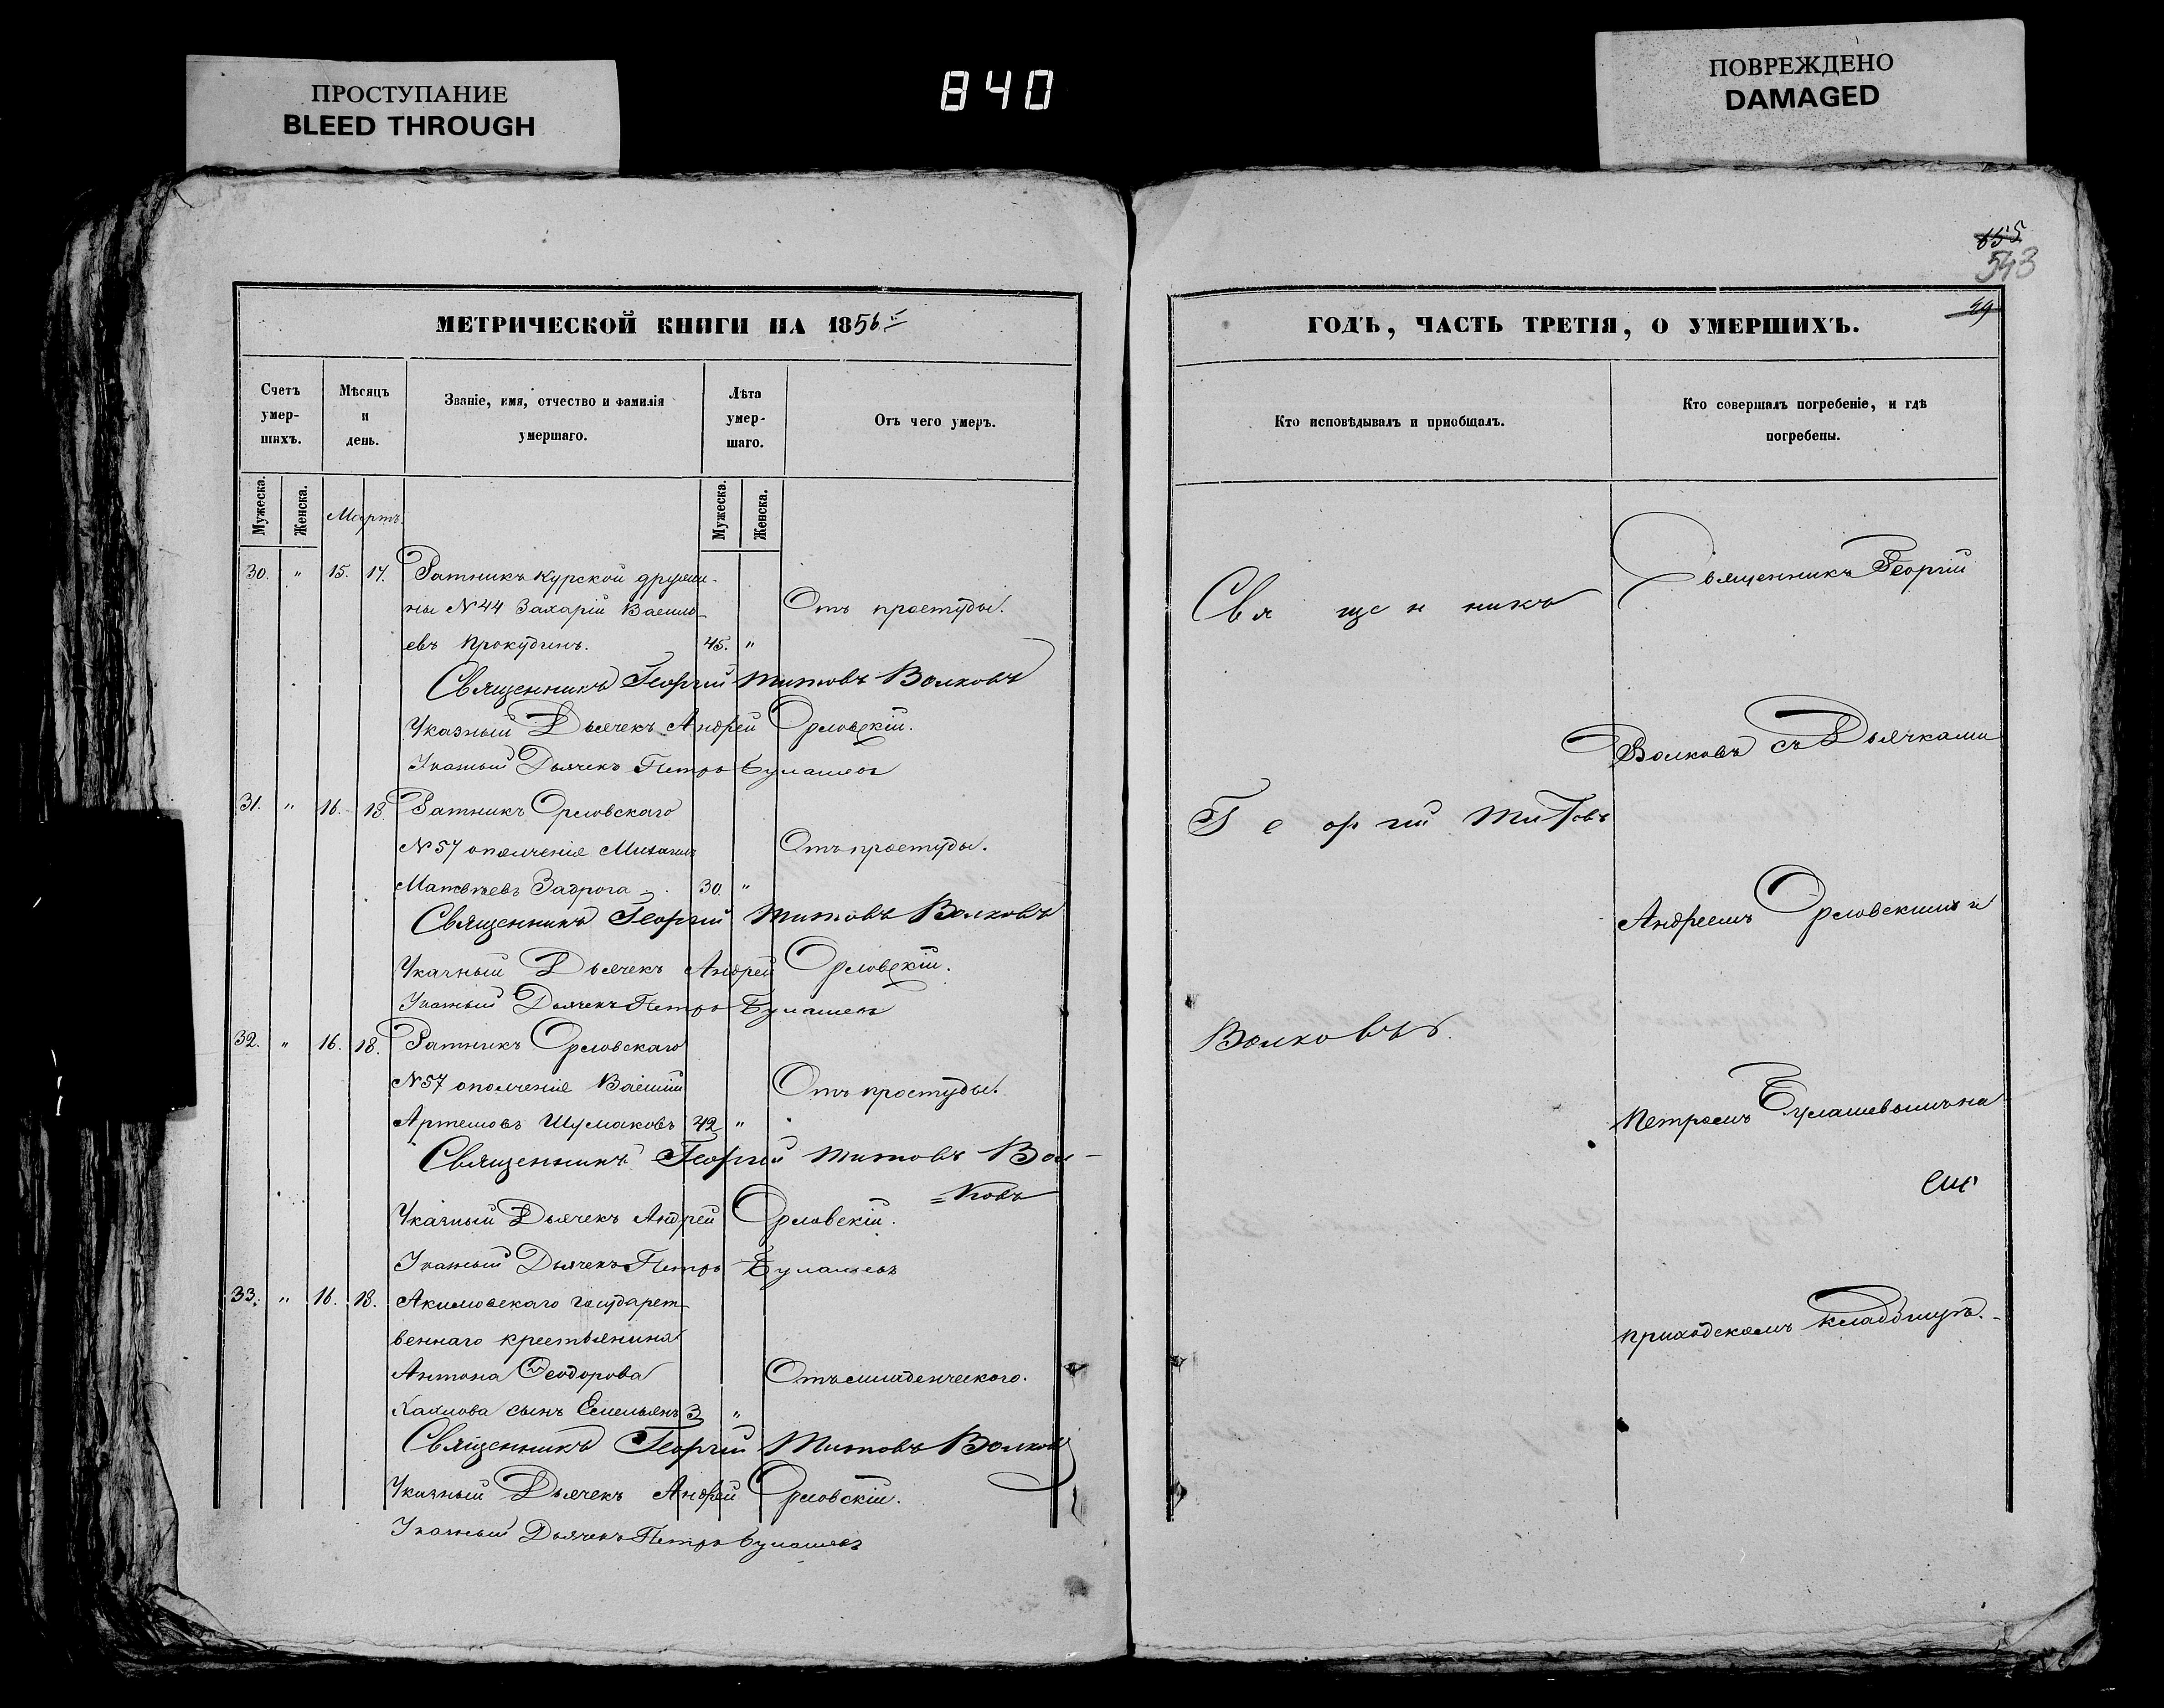 ПРОСТУПАНИЕ
BLEED THROUGH
840
ПОВРЕЖДЕНО
DAMAGED
МЕТРИЧЕСКОЙ КНИГИ НА 1856й
Счетъ умер-шихъ.
Мѣсяцъ и день.
Званіе, имя, отчество и фамилія умершаго.
Лѣта умер-шаго.
Отъ чего умеръ.
Мужеска.
Женска.
Мартъ.
Мужеска.
Женска.
30. " 15. 17. Ратникъ Курской дружи-
ны N 44 Захарій Василь- Отъ простуды.
евъ Прокудинъ. 45. "
Священникъ Георгій Титовъ Волковъ
Указный Дьячекъ Андрей Орловскій.
Указный Дьячекъ Петръ Булашевъ
31. " 16. 18. Ратникъ Орловскаго
N 57 ополченія Михаилъ Отъ простуды.
Матвѣевъ Задрога 30 "
Священникъ Георгій Титовъ Волковъ
Указный Дьячекъ Андрей Орловскій.
Указный Дьячекъ Петръ Булашевъ
32. " 16. 18. Ратникъ Орловскаго
N 57 ополченія Василій Отъ простуды.
Артемовъ Шумаковъ 42 "
Священникъ Георгій Титовъ Вол-
=ковъ
Указный Дьячекъ Андрей Орловскій.
Указный Дьячекъ Петръ Булашевъ
33. " 16. 18. Акимовскаго государст-
веннаго крестьянина
Антона Ѳеодорова Отъ младенческаго.
сынъ Емельянъ 3 "
Священникъ Георгій Титовъ Волковъ
Указный Дьячекъ Андрей Орловскій.
Указный Дьячекъ Петръ Булашевъ
655
543
49
ГОДЪ, ЧАСТЬ ТРЕТІЯ, О УМЕРШИХЪ.
Кто исповѣдывалъ и пріобщалъ.
Кто совершалъ погребеніе, и гдѣ погребены.
Священникъ
Георгій Титовъ
Волковъ.
Священникъ Георгій
Волковъ съ Дьячками
Андреемъ Орловскимъ и
Петромъ Булашевымъ на
приходскомъ кладбищѣ.